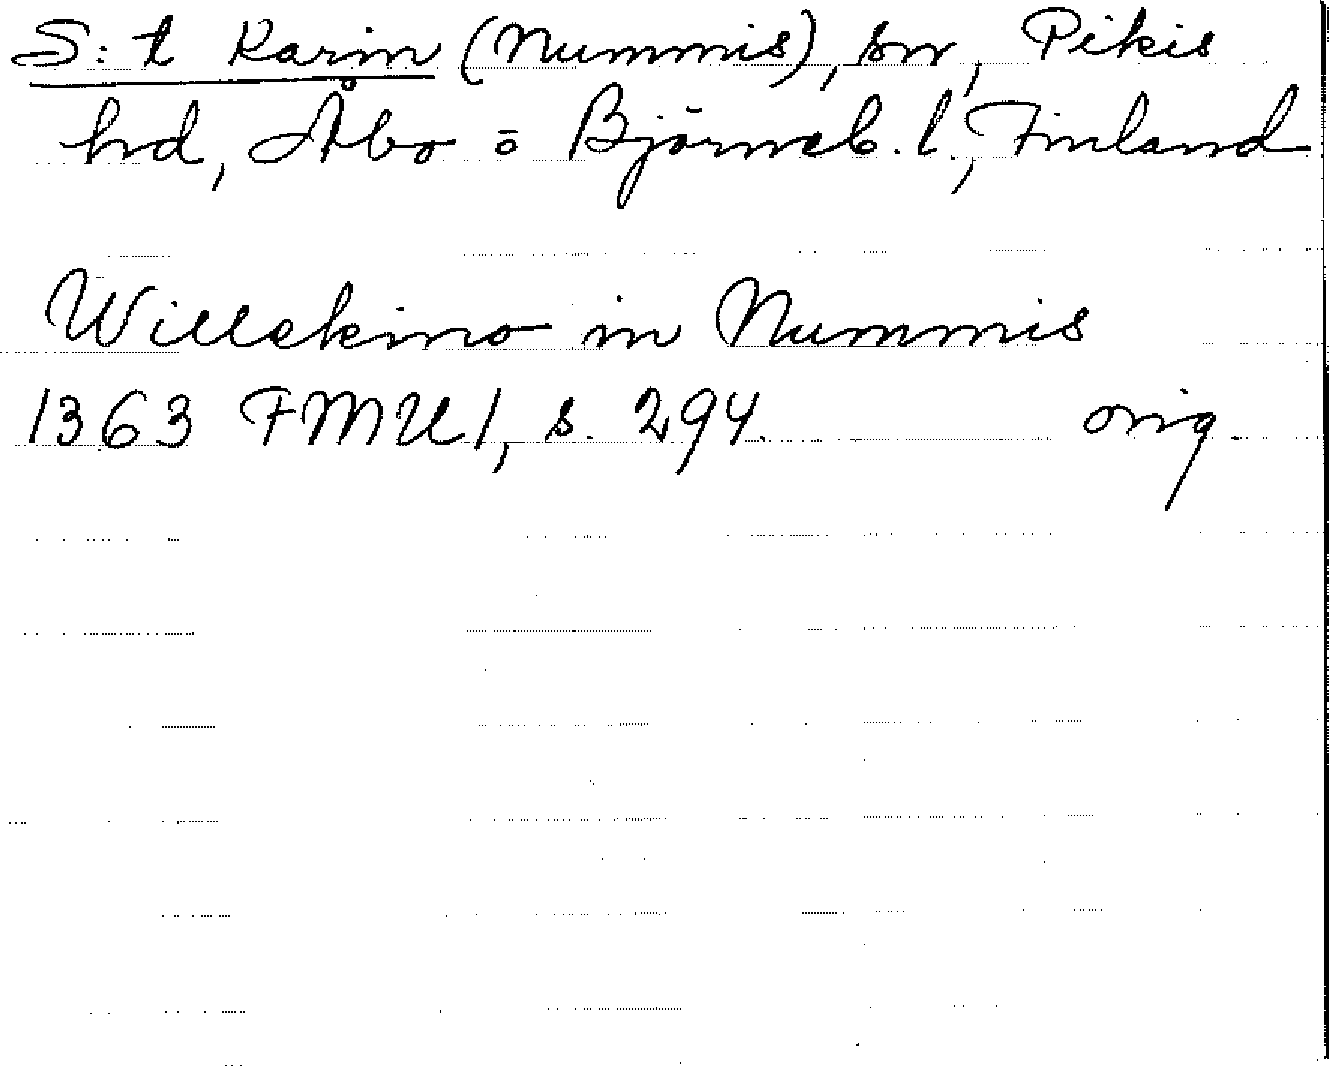 S:t Karin (Nummis), sn, Pikis
hd, Åbo o Björneb. l., Finland
Willekino in Nummis
1363 FMU 1, s. 294. orig.